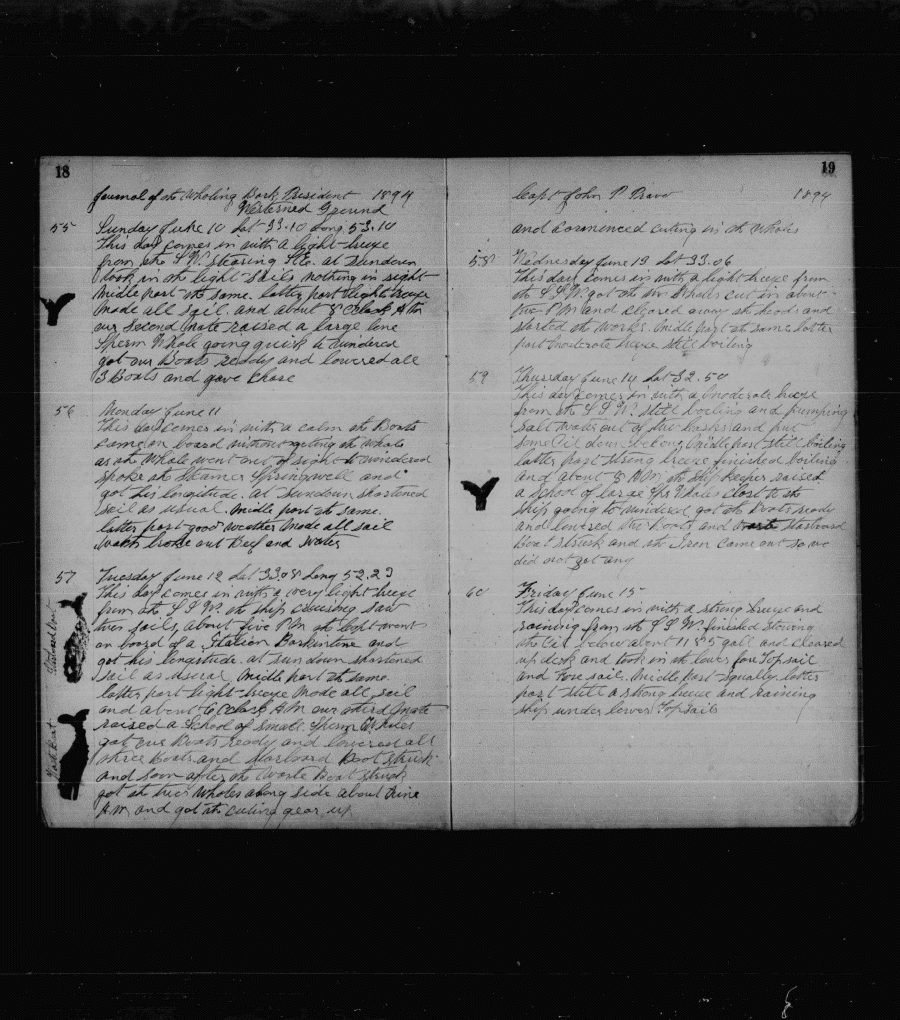 18
Journal of the Whaling Bark President 1894
Westerned Ground
55 Sunday June 10 Lat 33.10 Long 53.10
This day comes in with a light breeze
from the S W. Stearing S E. at Sundown
took in the light Sails nothing in sight
midle part the same. latter part light breeze
made all sail. and about 8 Oclock A M
our Second Mate raised a large lone
Sperm Whale going quick to windered
got our Boats ready and lowered all
3 Boats and gave chase
56 Monday June 11
This day comes in with a calm the Boats
came on board without geting the whale
as the Whale went out of sight to windered
spoke the Steamer Springwell and
got his longitude. at Sundown shortened
sail as usual. midle part the same.
latter part good weather made all sail
watch broke out Beef and water
57 Tuesday June 12 Lat 33.08 Long 52.23
This day comes in with a very light breeze
from the S S W. the ship cruising saw
two sails, about five P M the Capt went
on board of a Italian Barkintine and
got his longitude. at sundown shortened
sail as useral midle part the same.
latter part light breeze made all sail
and about 6 Oclock A M our third Mate
raised a School of small Sperm Whales
got our Boats ready and lowered all
three Boats and Starbord Boat struk
and soon after the Waste Boat struck
got the two Whales along side about nine
A M and got the cuting gear up
Starbord Boat
Wast Boat
19
Capt John P Pravo 1894
and commenced cuting in the whales
58 Wednesday June 13 Lat 33.06
This day comes in with a light breeze from
the S S W. got the two Whales cut in about
two P M and cleared away the heads and
started the works. midle part the same latter
part moderate breeze still boiling
59 Thursday June 14 Lat 32.50
This day comes in with a moderate breeze
from the S S W. still boiling and pumping
salt water out of the casks and put
some Oil down below, midle part still boiling
latter part strong breeze finished boiling
and about 8 A M, the Ship keeper raised
a School of large Spr Whales close to the
ship going to windered got the Boats ready
and lowered two Boats and Starboard
Boat struck and the Iron came out so we
did not get any
60 Friday June 15
This day comes in with a strong breeze and
raining from the S S W finished stowing
the Oil below about 1185 gall and cleared
up deck and took in the lower fore Topsail
and Fore sail. midle part squally. latter
part still a strong breeze and raining
ship under lower Topsails